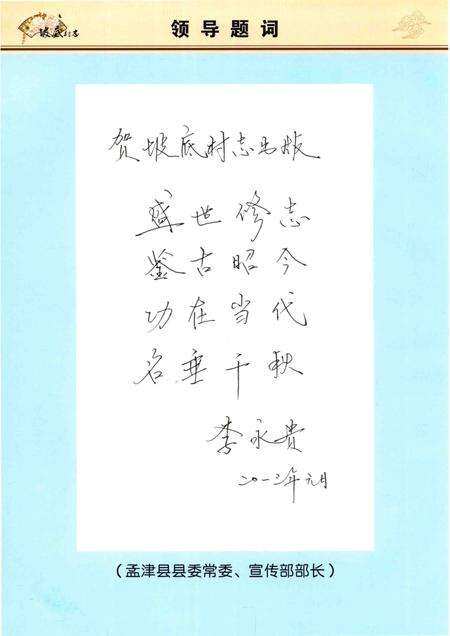 坡底村志
领导题词
贺坡底村志出版
盛世修志
鉴古昭今
功在当代
名垂千秋
李永贵
二〇一三年元月
(孟津县县委常委、宣传部部长)